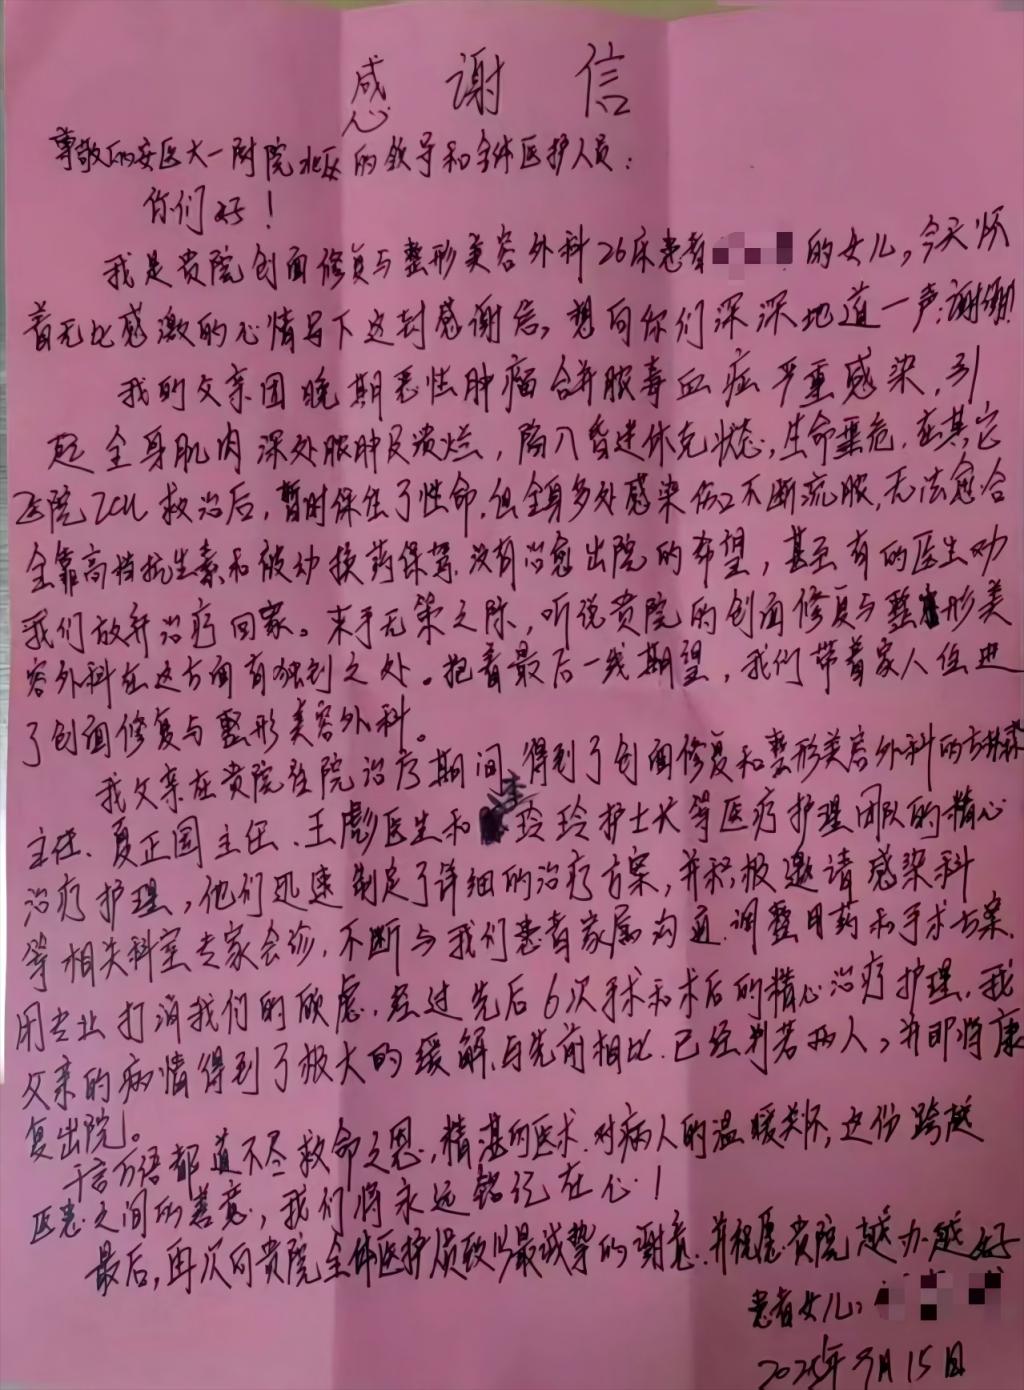 感谢信
尊敬的安医大一附院北区的领导和全体医护人员：
你们好！
我是贵院创面修复与整形美容外科26床患者的女儿，今天怀
着无比感激的心情写下这封感谢信，想向你们深深地道一声：谢谢！
我的父亲因晚期恶性肿瘤合并脓毒血症严重感染，引
起全身肌肉深处脓肿及溃烂，陷入昏迷休克状态，生命垂危，在其它
医院ICU救治后，暂时保住了性命，但全身多处感染伤口不断流脓，无法愈合
全靠高档抗生素和被动换药保守，没有治愈出院的希望，甚至有的医生劝
我们放弃治疗回家。束手无策之际，听说贵院的创面修复与整形美
容外科在这方面有独到之处。抱着最后一线期望，我们带着家人住进
了创面修复与整形美容外科。
我父亲在贵院住院治疗期间，得到了创面修复和整形美容外科的方林森
主任、夏正国主任、王彪医生和李玲玲护士长等医疗护理团队的精心
治疗护理，他们迅速制定了详细的治疗方案，并积极邀请感染科
等相关科室专家会诊，不断与我们患者家属沟通，调整用药和手术方案，
用专业打消我们的顾虑，经过先后6次手术和术后的精心治疗护理，我
父亲的病情得到了极大的缓解，与先前相比，已经判若两人，并即将康
复出院。
千言万语都道不尽救命之恩，精湛的医术，对病人的温暖关怀，这份跨越
医患之间的善意，我们将永远铭记在心！
最后，再次向贵院全体医护人员致以最诚挚的谢意，并祝愿贵院越办越好
患者女儿：
2025年9月15日